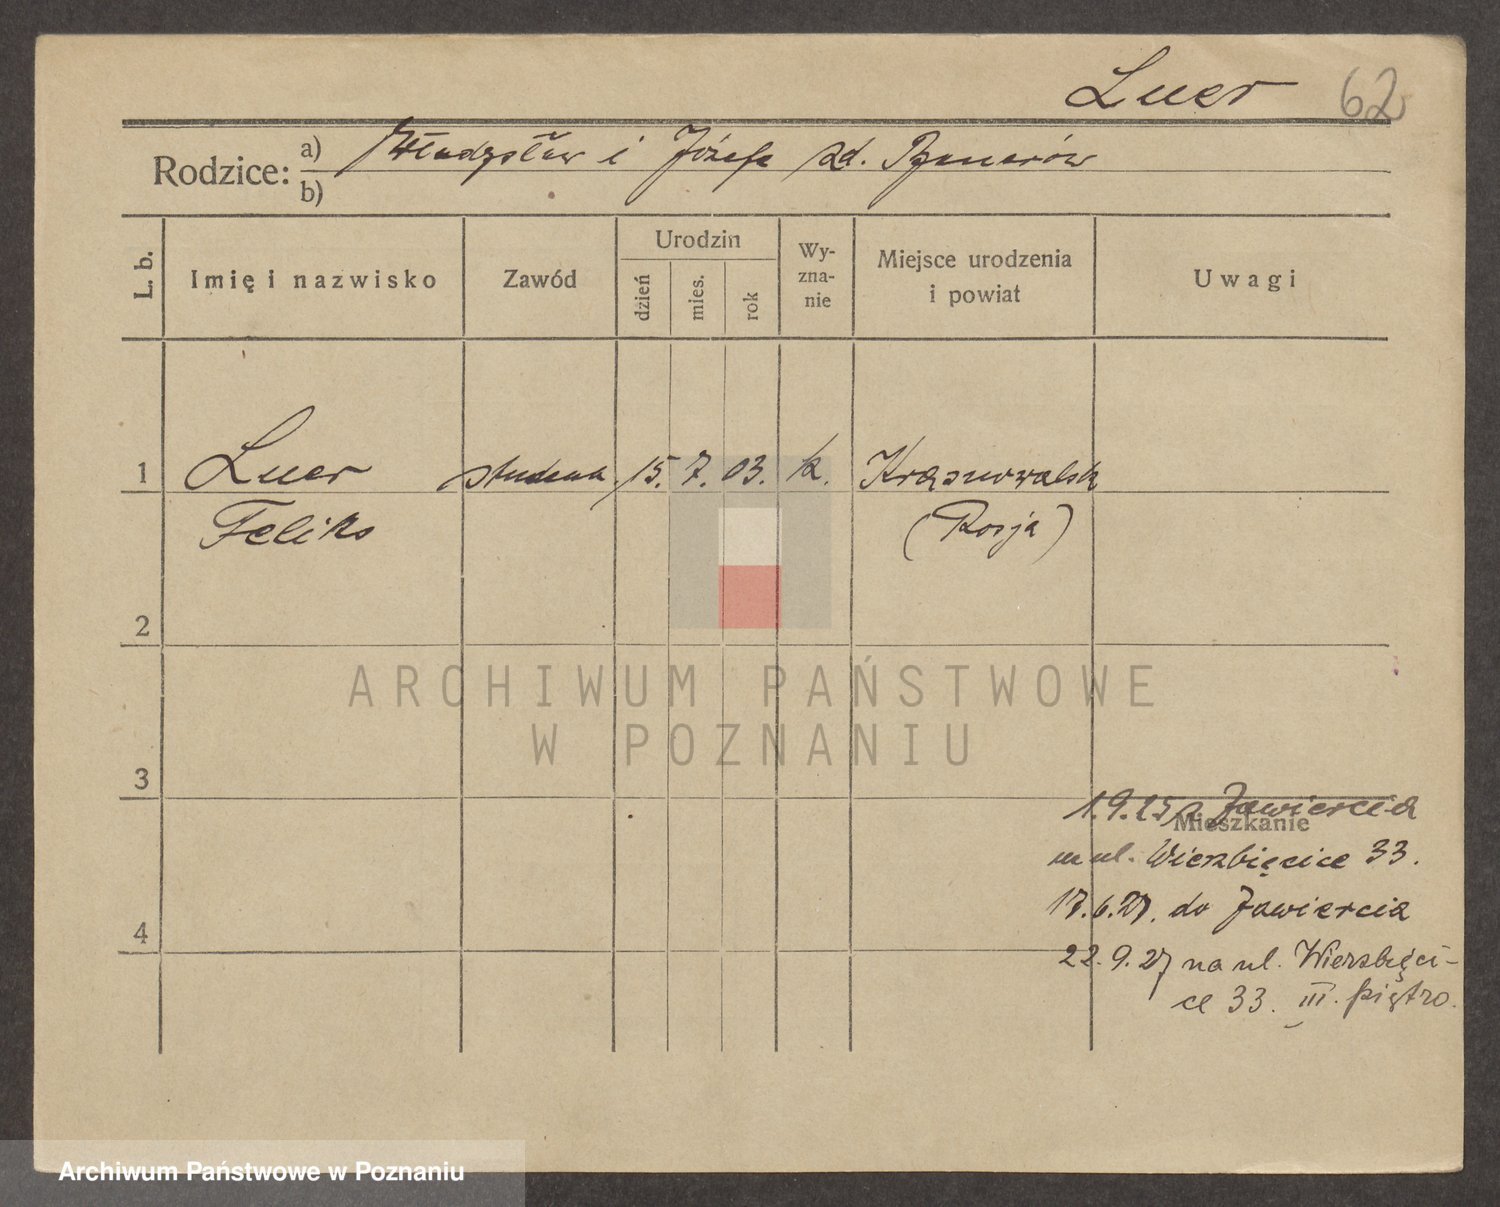 Luer 62
Rodzice: a) Władysław i Józefa zd.
b)
L. b. Imię i nazwisko Zawód Urodzin dzień mies. rok Wy-zna-nie Miejsce urodzenia i powiat Uwagi
1 Luer student 15. 7. 03. k.
Feliks (Rosja)
2
ARCHIWUM PAŃSTWOWE
W POZNANIU
3
1.9.25 z Zawiercia
Mieszkanie
na ul. Wierzbięcice 33.
17.6.27. do Zawiercia
4
22.9.27 na ul. Wierzbięci-
ce 33. III. piętro.
Archiwum Państwowe w Poznaniu